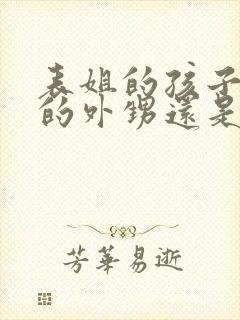 表姐的孩子
的外甥還是
芳華易逝